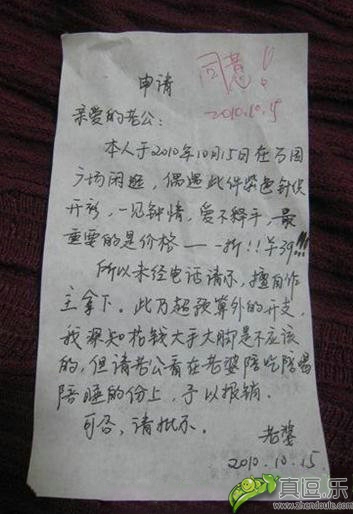 同意！
2010.10.15
申请
亲爱的老公：
本人于2010年10月15日在万国
广场闲逛，偶遇此件紫色针织
开衫，一见钟情，爱不释手，最
重要的是价格——一折！！羊39!!!
所以未经电话请示，擅自作
主拿下。此乃超预算外的开支，
我深知花钱大手大脚是不应该
的，但请老公看在老婆陪吃陪喝
陪睡的份上，予以报销．
可否，请批示．
老婆
2010.10.15
真逗.乐
www.zhendoule.com